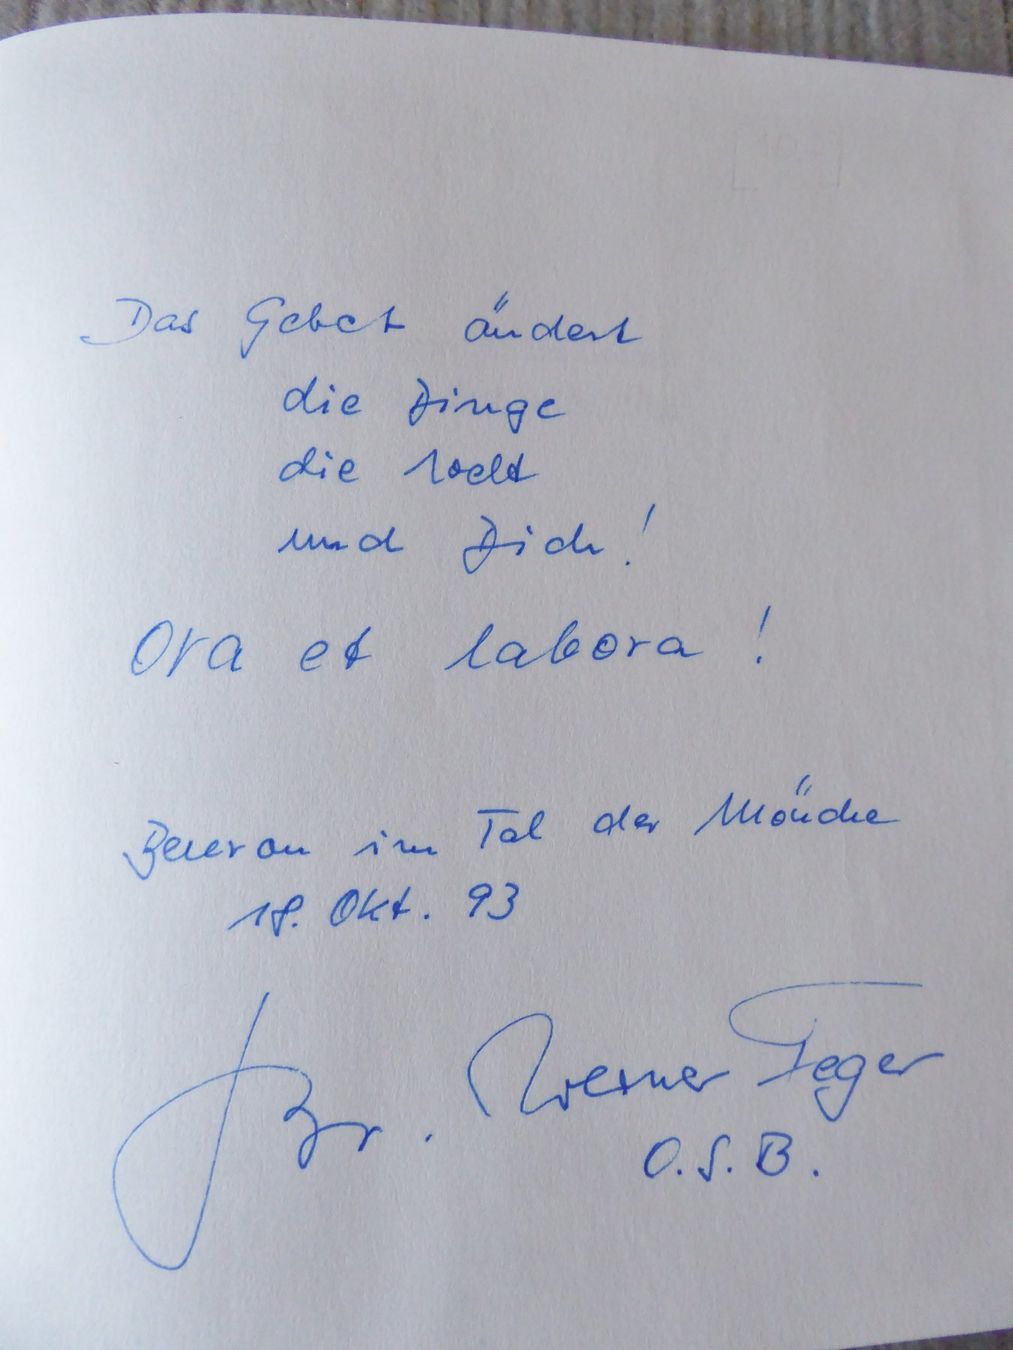 Das Gebet ändert
die Dinge
die Welt
und Dich!
Ora et labora!
Beuron im Tal der Mönche
18. Okt. 93
Br. Werner Teger
O.S.B.